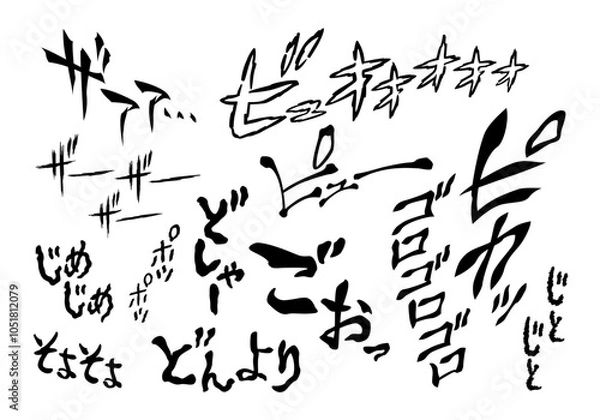 ザァァ…
ビュオオオオオ
ザー
ザー
ザー
ピュー
ピカッ
ゴロゴロゴロゴロ
どしゃー
ごおっ
ポツ
ポツ
じめ
じめ
じと
じと
そよそよ
どんより
Adobe Stock | #1051812079